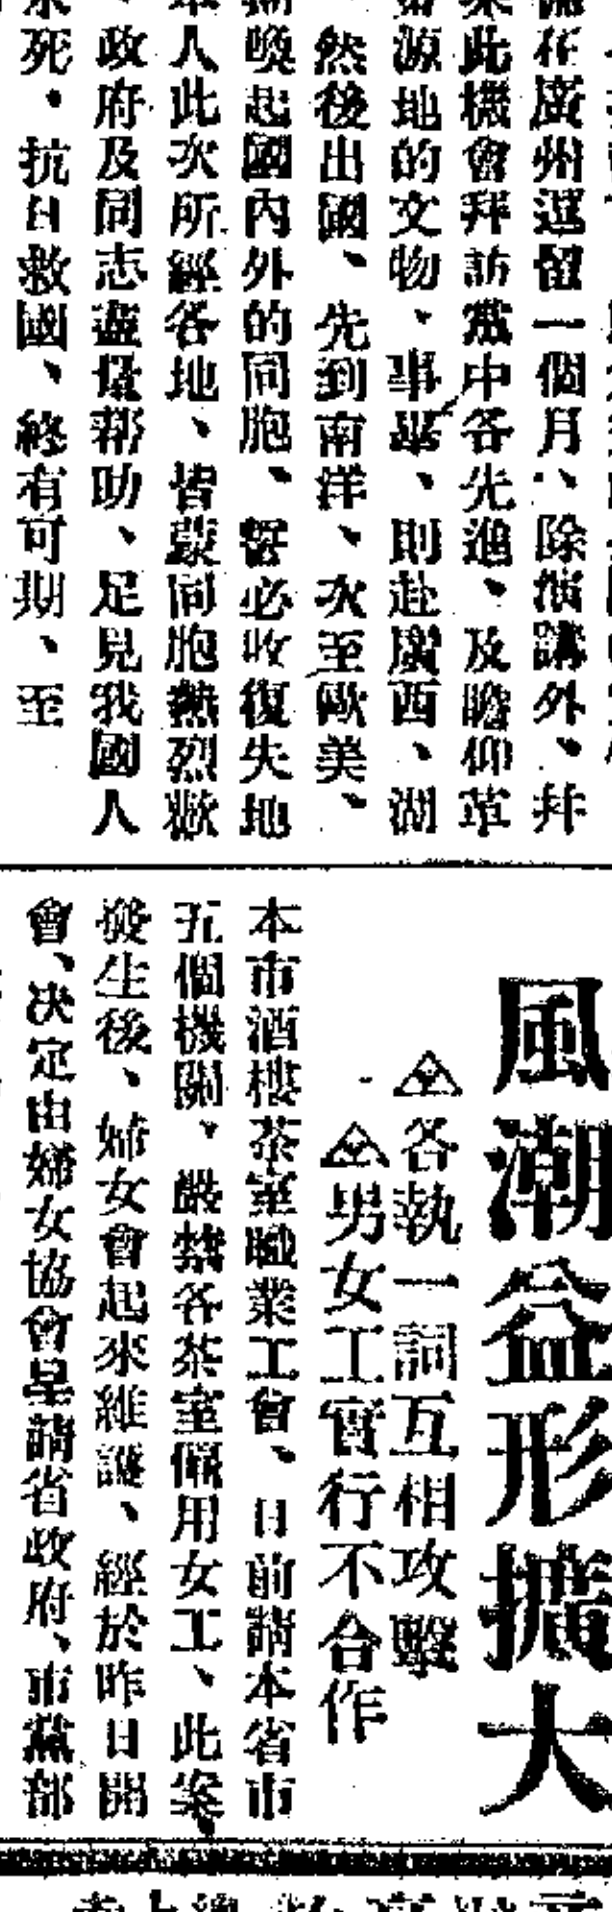 在廣州逗留一個月、除演講外、并
此機會拜訪黨中各先進、及瞻仰革
源地的文物、事畢、則赴廣西、湖
然後出國、先到南洋、次至歐美、
喚起國內外的同胞、誓必收復失地
人此次所經各地、皆蒙同胞熱烈歡
、政府及同志盡量帮助、足見我國人
死・抗日救國、終有可期、至
風潮益形擴大
各執一詞互相攻擊
男女工實行不合作
本市酒樓茶室職業工會、日前請本省市
五個機關、嚴禁各茶室僱用女工、此案
發生後、婦女會起來維護、經於昨日開
會、决定由婦女協會呈請省政府、市黨部